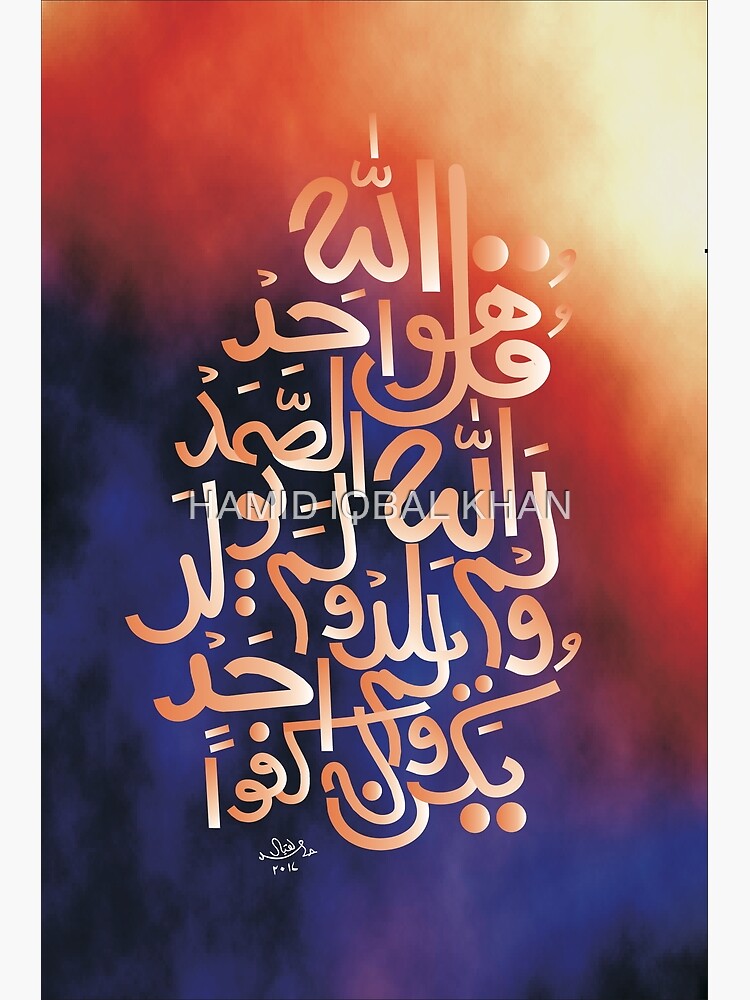 قُلْ هُوَ اللّٰهُ اَحَدٌ
اَللّٰهُ الصَّمَدُ
لَمْ يَلِدْ وَلَمْ يُولَدْ
وَلَمْ يَكُنْ لَهُ كُفُوًا اَحَدٌ
HAMID IQBAL KHAN